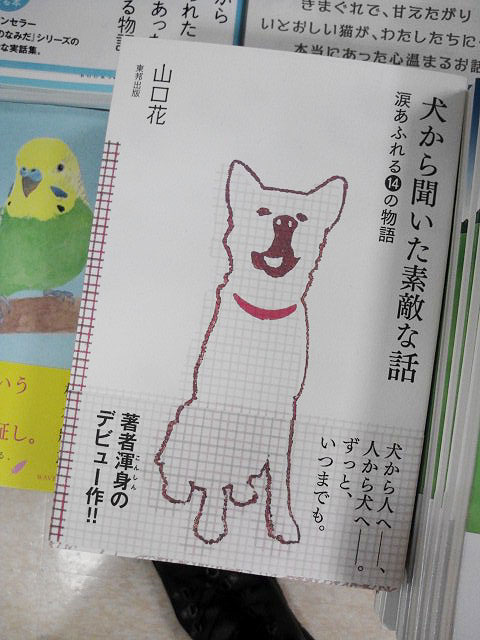 犬から聞いた素敵な話
涙あふれる14の物語
山口花
東邦出版
犬から人へ――、
人から犬へ――。
ずっと、
いつまでも。
著者渾身の
こんしん
デビュー作!!
きまぐれで、甘えたがり
いとおしい猫が、わたしたちに
本当にあった心温まるお話
から
れた
あった
る物語
ンセラー
のなみだ』シリーズの
な実話集。
いう
証し。
る。
WAVE